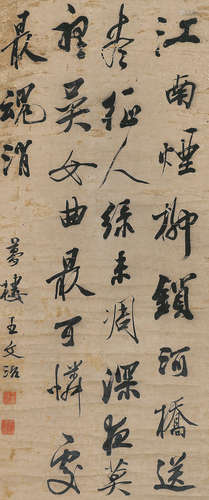 江南煙柳鎖河橋送
盡征人綠未凋深夜莫
吳女曲最可憐處
最魂消
夢樓王文治